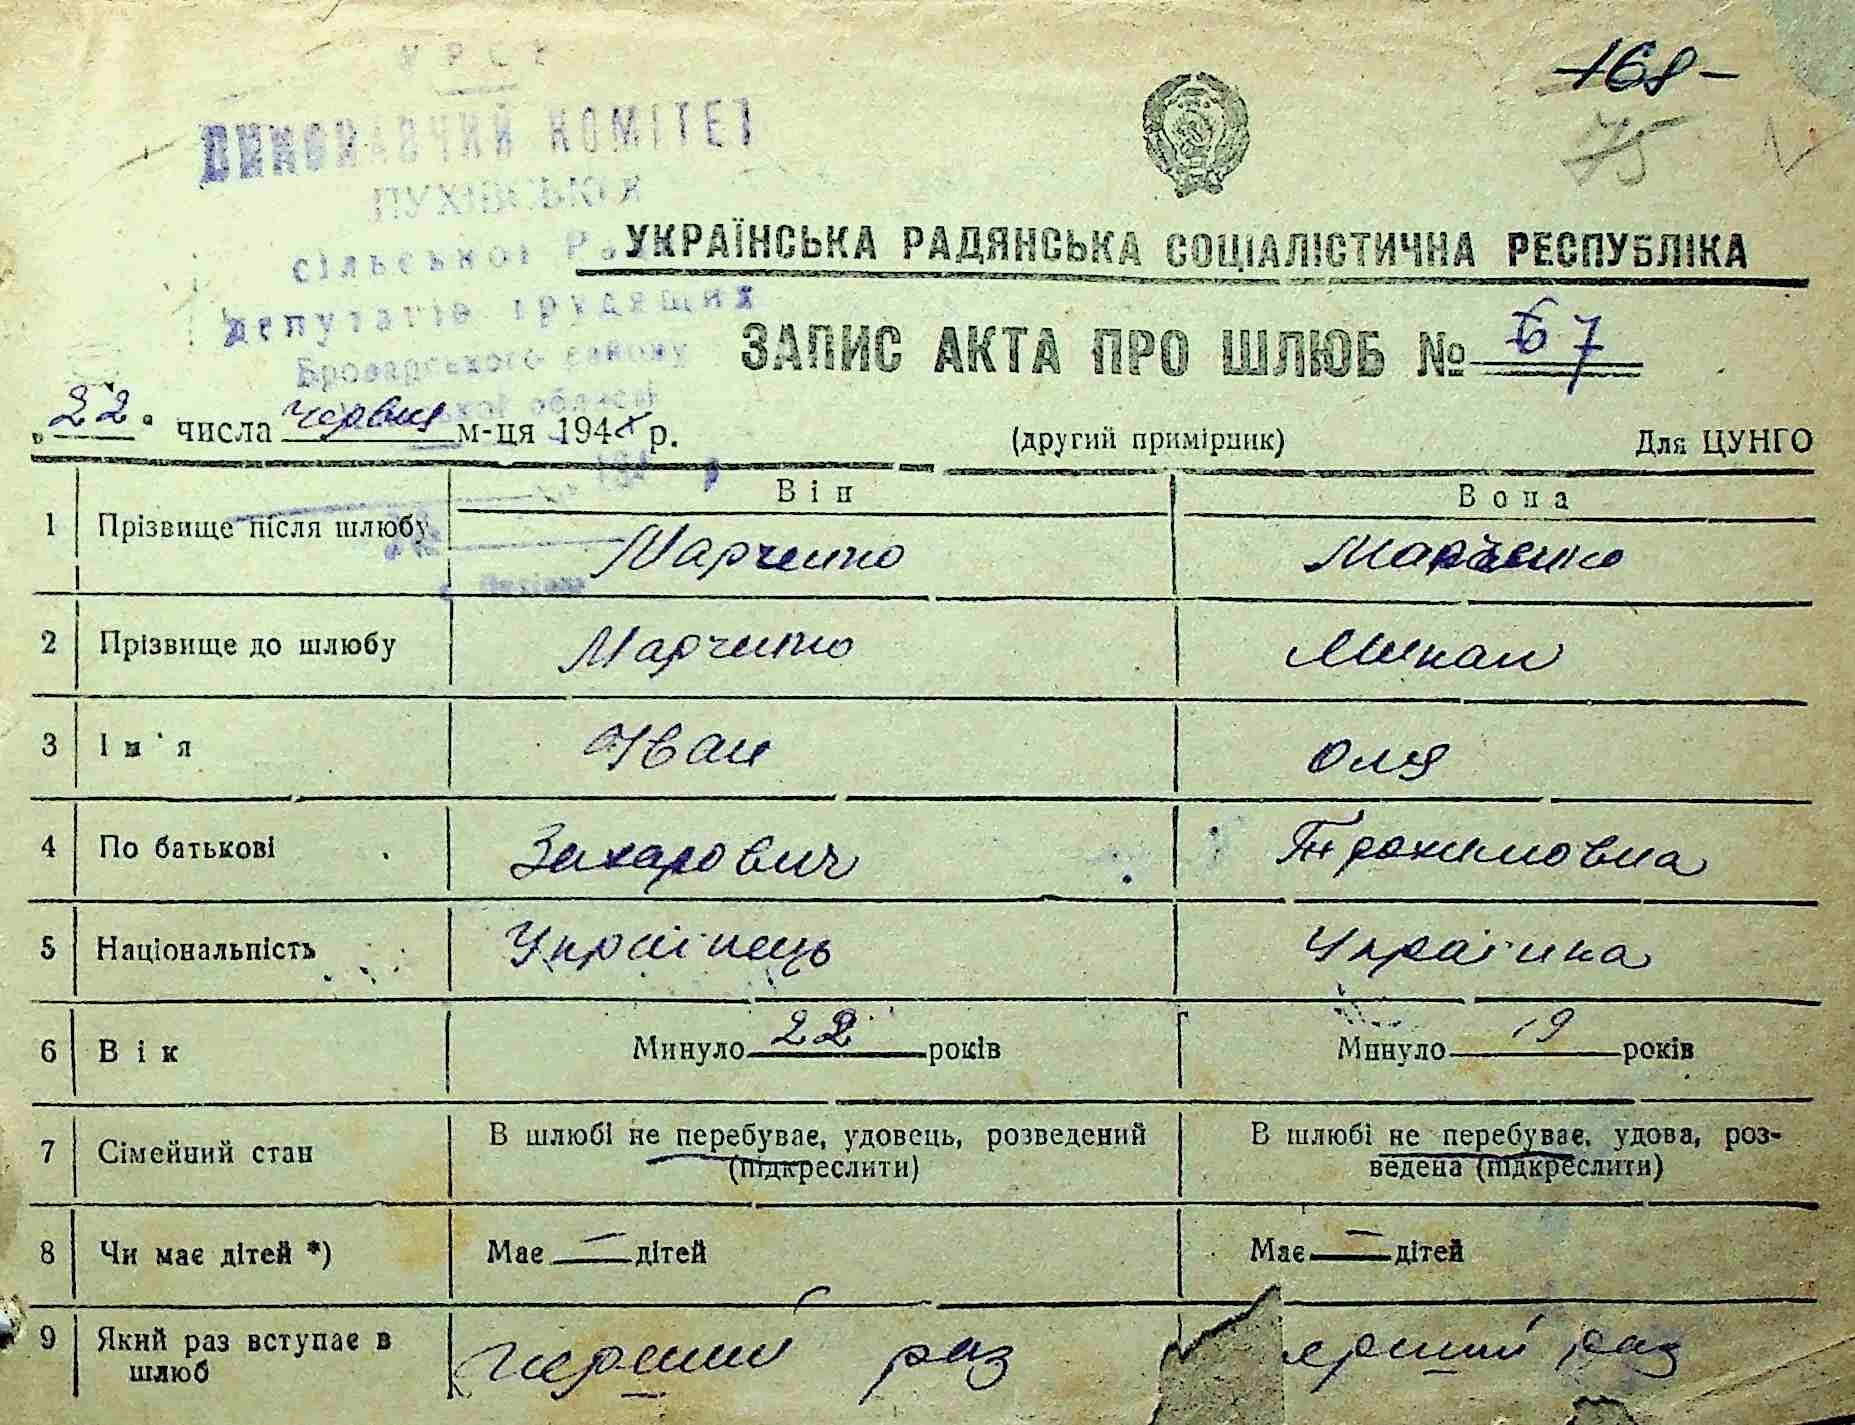 УРСР
-168-
75
ВИКОНАВЧИЙ КОМІТЕТ
ПУХІВСЬКОЇ
сільської Р
депутатів трудящих
Броварського району
області
УКРАЇНСЬКА РАДЯНСЬКА СОЦІАЛІСТИЧНА РЕСПУБЛІКА
ЗАПИС АКТА ПРО ШЛЮБ № 67
„22" числа червня м-ця 194 р. (другий примірник) Для ЦУНГО
Він Вона
1 Прізвище після шлюбу Марченко Марченко
2 Прізвище до шлюбу Марченко
3 Ім'я Иван Оля
4 По батькові Захарович Трохимовна
5 Національність Українець Українка
6 Вік Минуло 22 років Минуло 19 років
7 Сімейний стан В шлюбі не перебуває, удовець, розведений (підкреслити) В шлюбі не перебуває, удова, роз-
ведена (підкреслити)
8 Чи має дітей *) Має — дітей Має — дітей
9 Який раз вступає в шлюб перший раз ерший раз